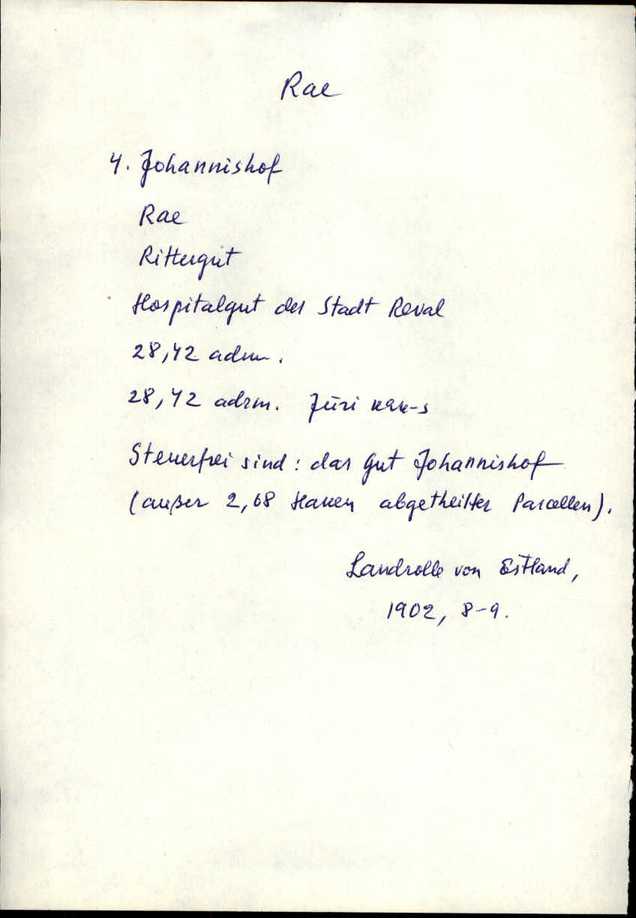 Rae
4. Johannishof
Rae
Rittergut
Hospitalgut der Stadt Reval
28,42 adrm.
28,42 adrm. Jüri
Steuerfrei sind: das Gut Johannishof
(außer 2,68 Haken abgetheilter Parcellen).
Landrolle von Estland,
1902, 8-9.